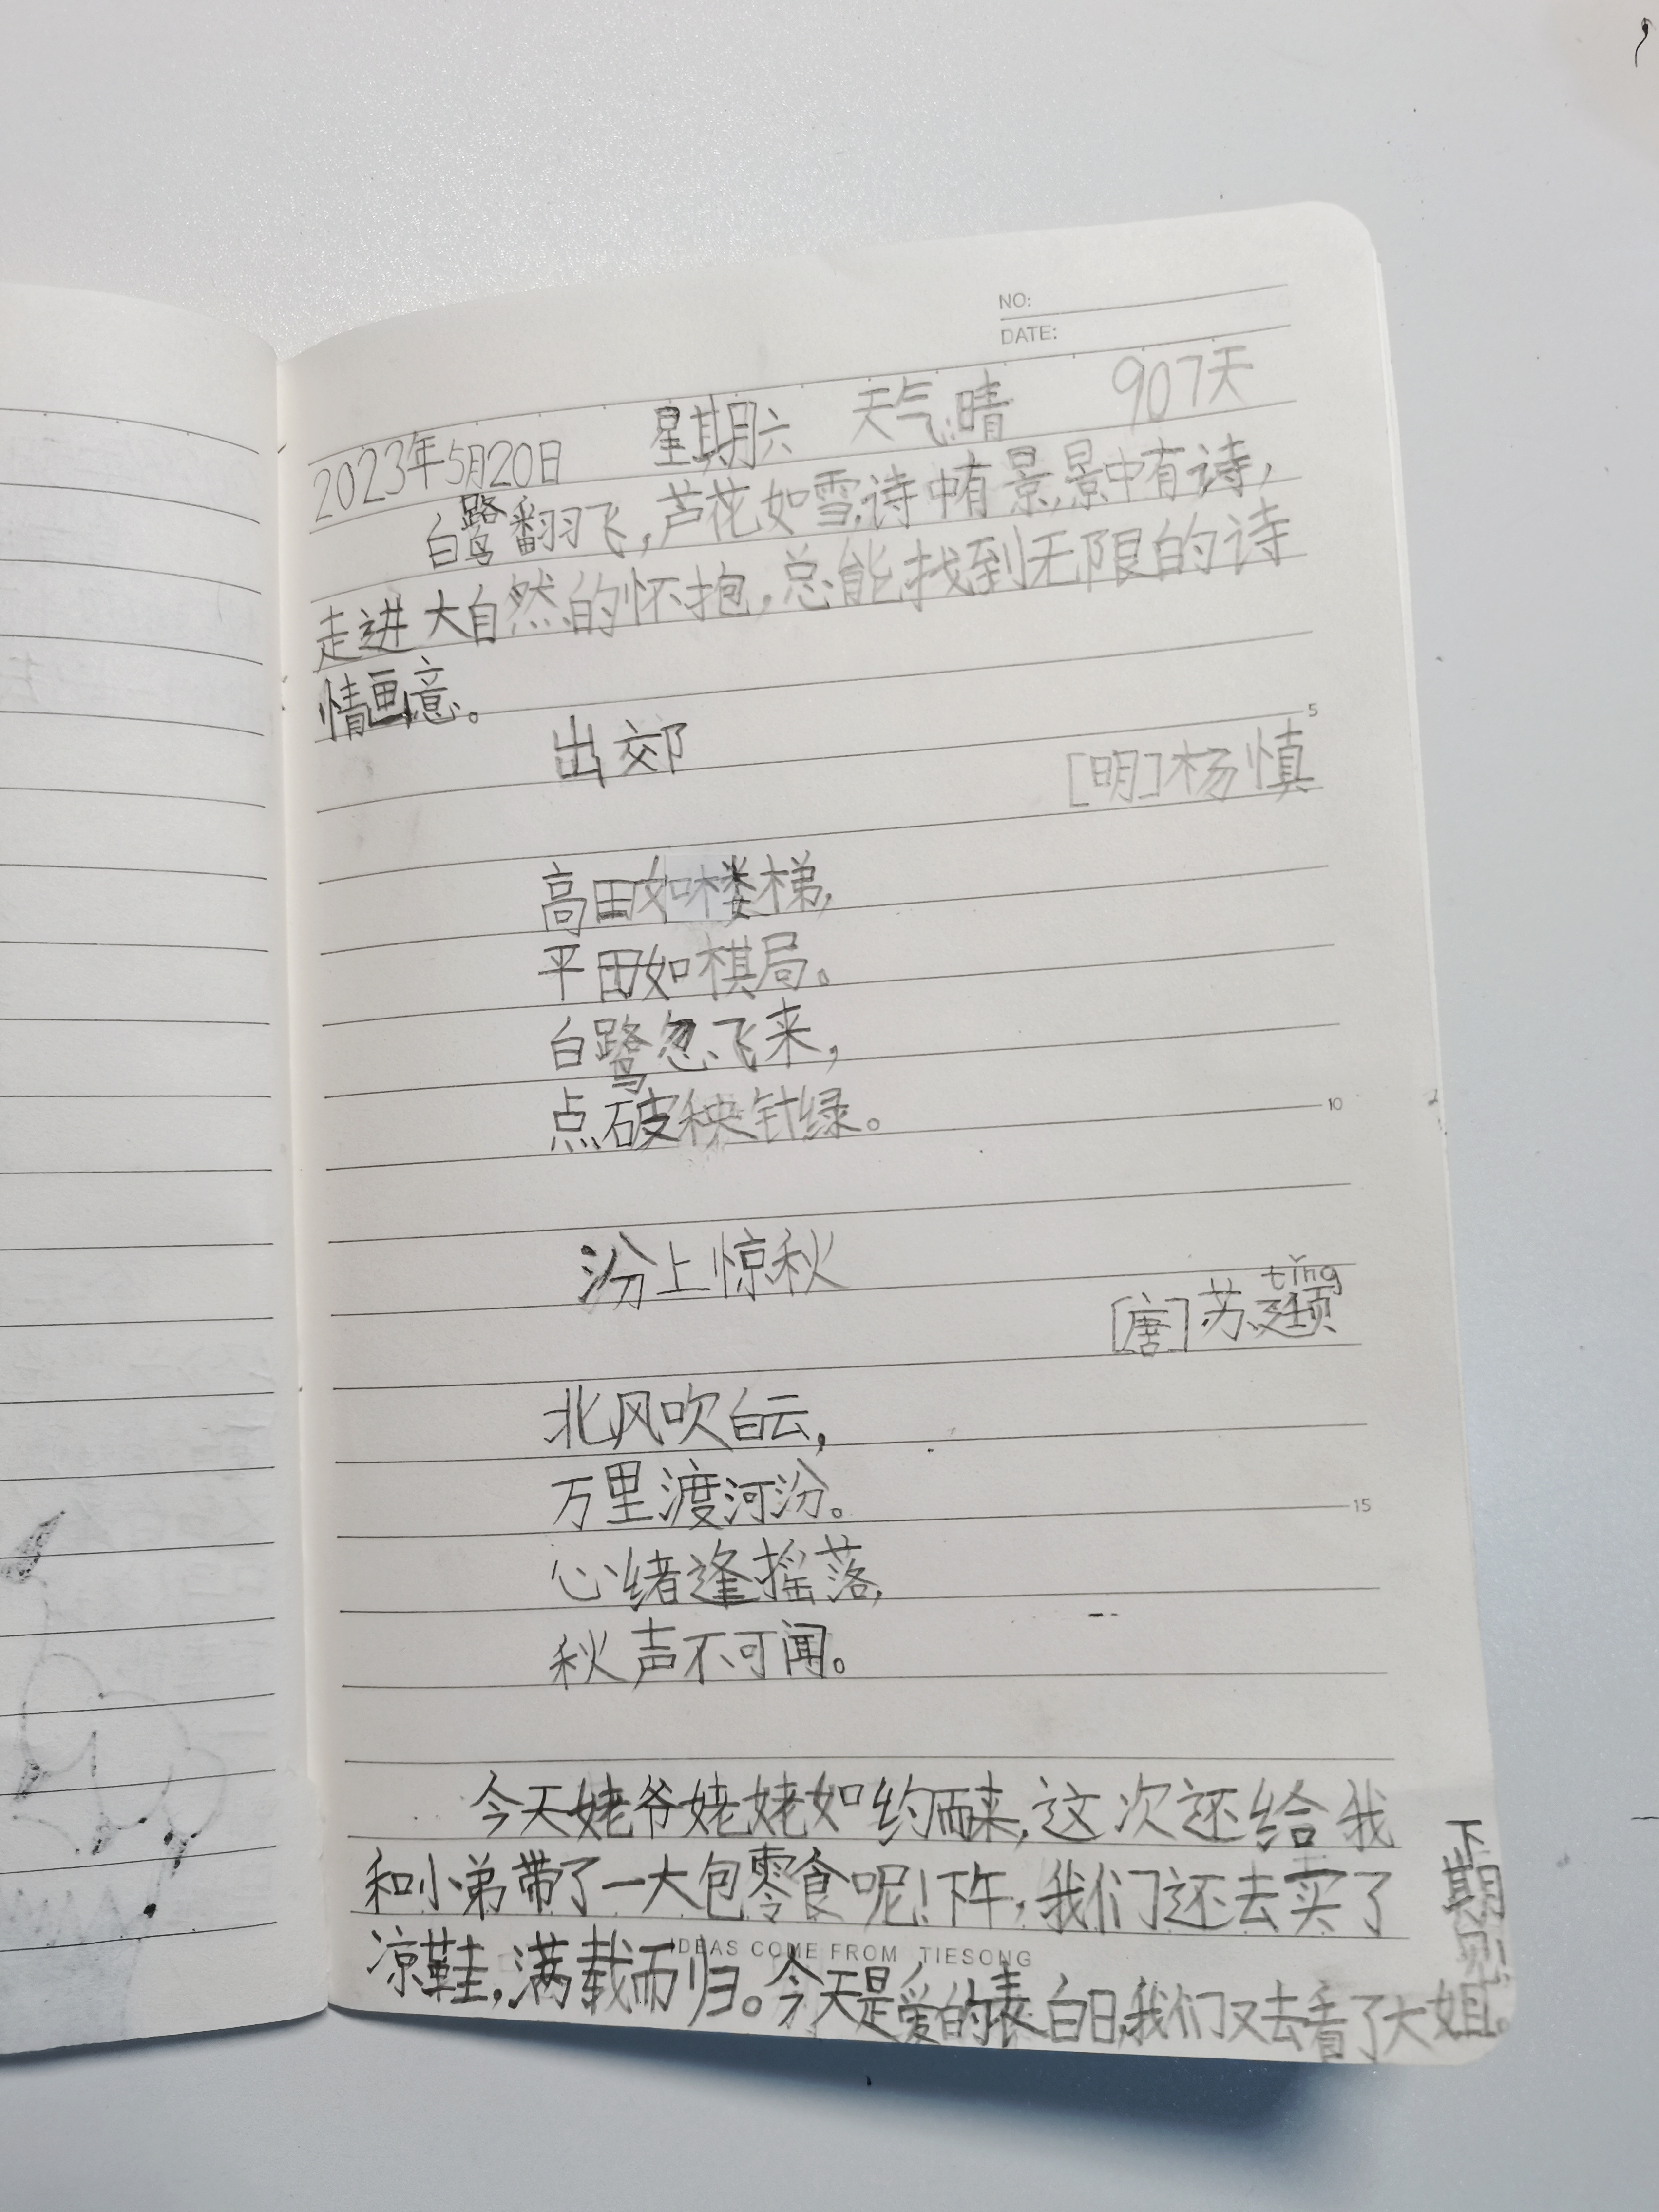 NO:
DATE:
2023年5月20日 星期六 天气晴 907天
白鹭翻飞,芦花如雪,诗中有景,景中有诗,
走进大自然的怀抱,总能找到无限的诗
情画意。
5
出郊
[明]杨慎
高田如楼梯,
平田如棋局。
白鹭忽飞来,
点破秧针绿。
10
汾上惊秋
tǐng
[唐]苏颋
北风吹白云,
万里渡河汾。
15
心绪逢摇落,
秋声不可闻。
今天姥爷姥姥如约而来,这次还给我
和小弟带了一大包零食呢!下午,我们还去买了
凉鞋,满载而归。今天是爱的表白日,我们又去看了大姐。
IDEAS COME FROM TIESONG
下期见!